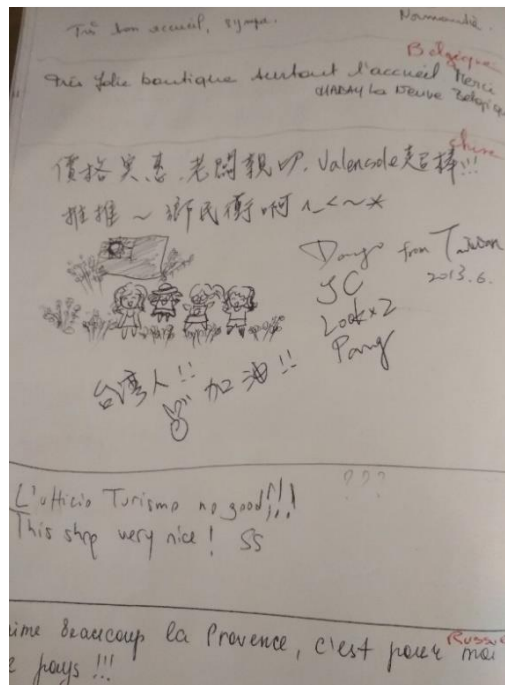 Très bon accueil, sympa. Normandie.
Belgique
Très jolie boutique surtout l'accueil Merci
HABAY La Neuve Belgique
Chine
價格實惠.老闆親切.Valensole超棒!!!
推推~鄉民衝啊^_<~*
Dango from Taiwan
2013.6.
JC
Look x2
Pang
台灣人!! 加油!!
???
L'ufficio Turismo no good!!!
This shop very nice! SS
Russie
aime beaucoup la Provence, c'est pour moi
pays !!!